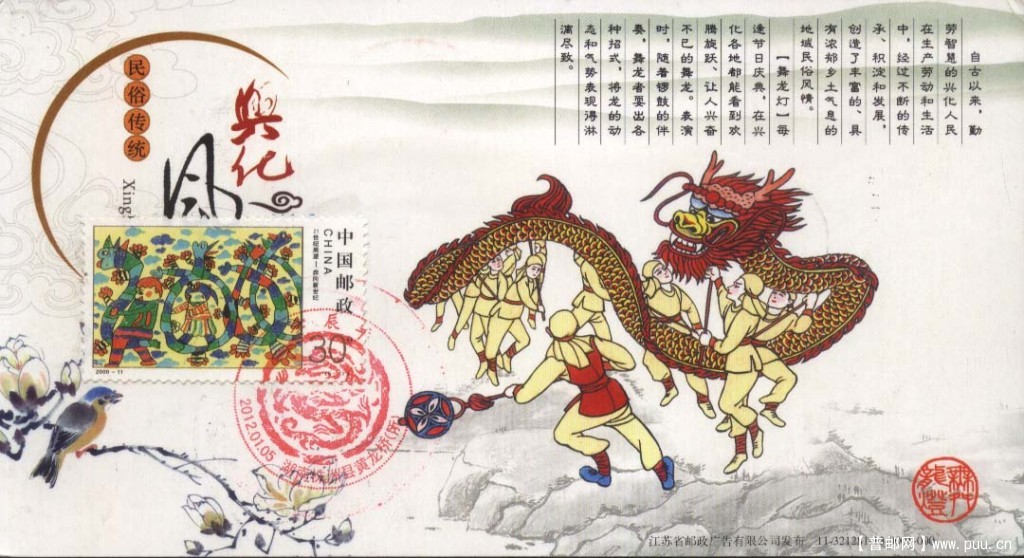 自古以来，勤
劳智慧的兴化人民
在生产劳动和生活
中，经过不断的传
承、积淀和发展，
创造了丰富的、具
有浓郁乡土气息的
地域民俗风情。
【舞龙灯】每
逢节日庆典，在兴
化各地都能看到欢
腾旋跃、让人兴奋
不已的舞龙。表演
时，随着锣鼓的伴
奏，舞龙者耍出各
种招式，将龙的动
态和气势表现得淋
漓尽致。
民俗传统
興化
风
Xing
中国邮政
CHINA
30
2000-11
2012.01.05
舞龙灯
江苏省邮政广告有限公司发布
【普邮网】www.puu.cn